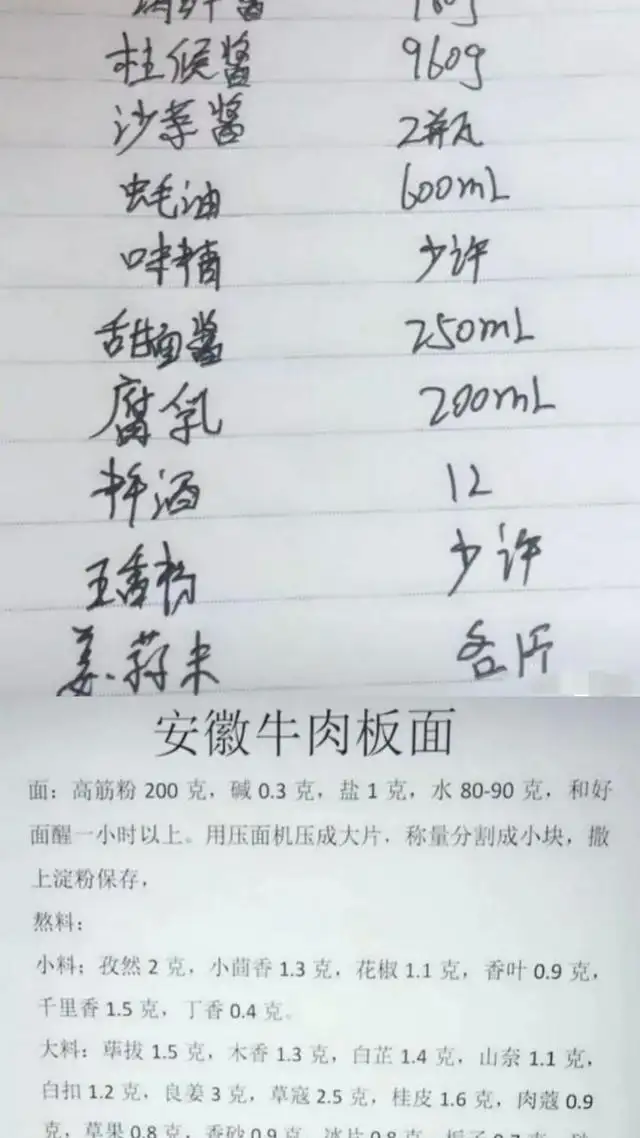 柱候酱 960g
沙茶酱 2瓶
蚝油 600mL
味精 少许
甜面酱 250mL
腐乳 200mL
料酒 12
五香粉 少许
姜.蒜末 各斤
安徽牛肉板面
面：高筋粉 200 克，碱 0.3 克，盐 1 克，水 80-90 克，和好
面醒一小时以上。用压面机压成大片，称量分割成小块，撒
上淀粉保存，
熬料：
小料；孜然 2 克，小茴香 1.3 克，花椒 1.1 克，香叶 0.9 克，
千里香 1.5 克，丁香 0.4 克。
大料：荜拔 1.5 克，木香 1.3 克，白芷 1.4 克，山奈 1.1 克，
白扣 1.2 克，良姜 3 克，草蔻 2.5 克，桂皮 1.6 克，肉蔻 0.9
克，草果 0.8 克，香砂 0.9 克，冰片 0.8 克，栀子 0.7 克，